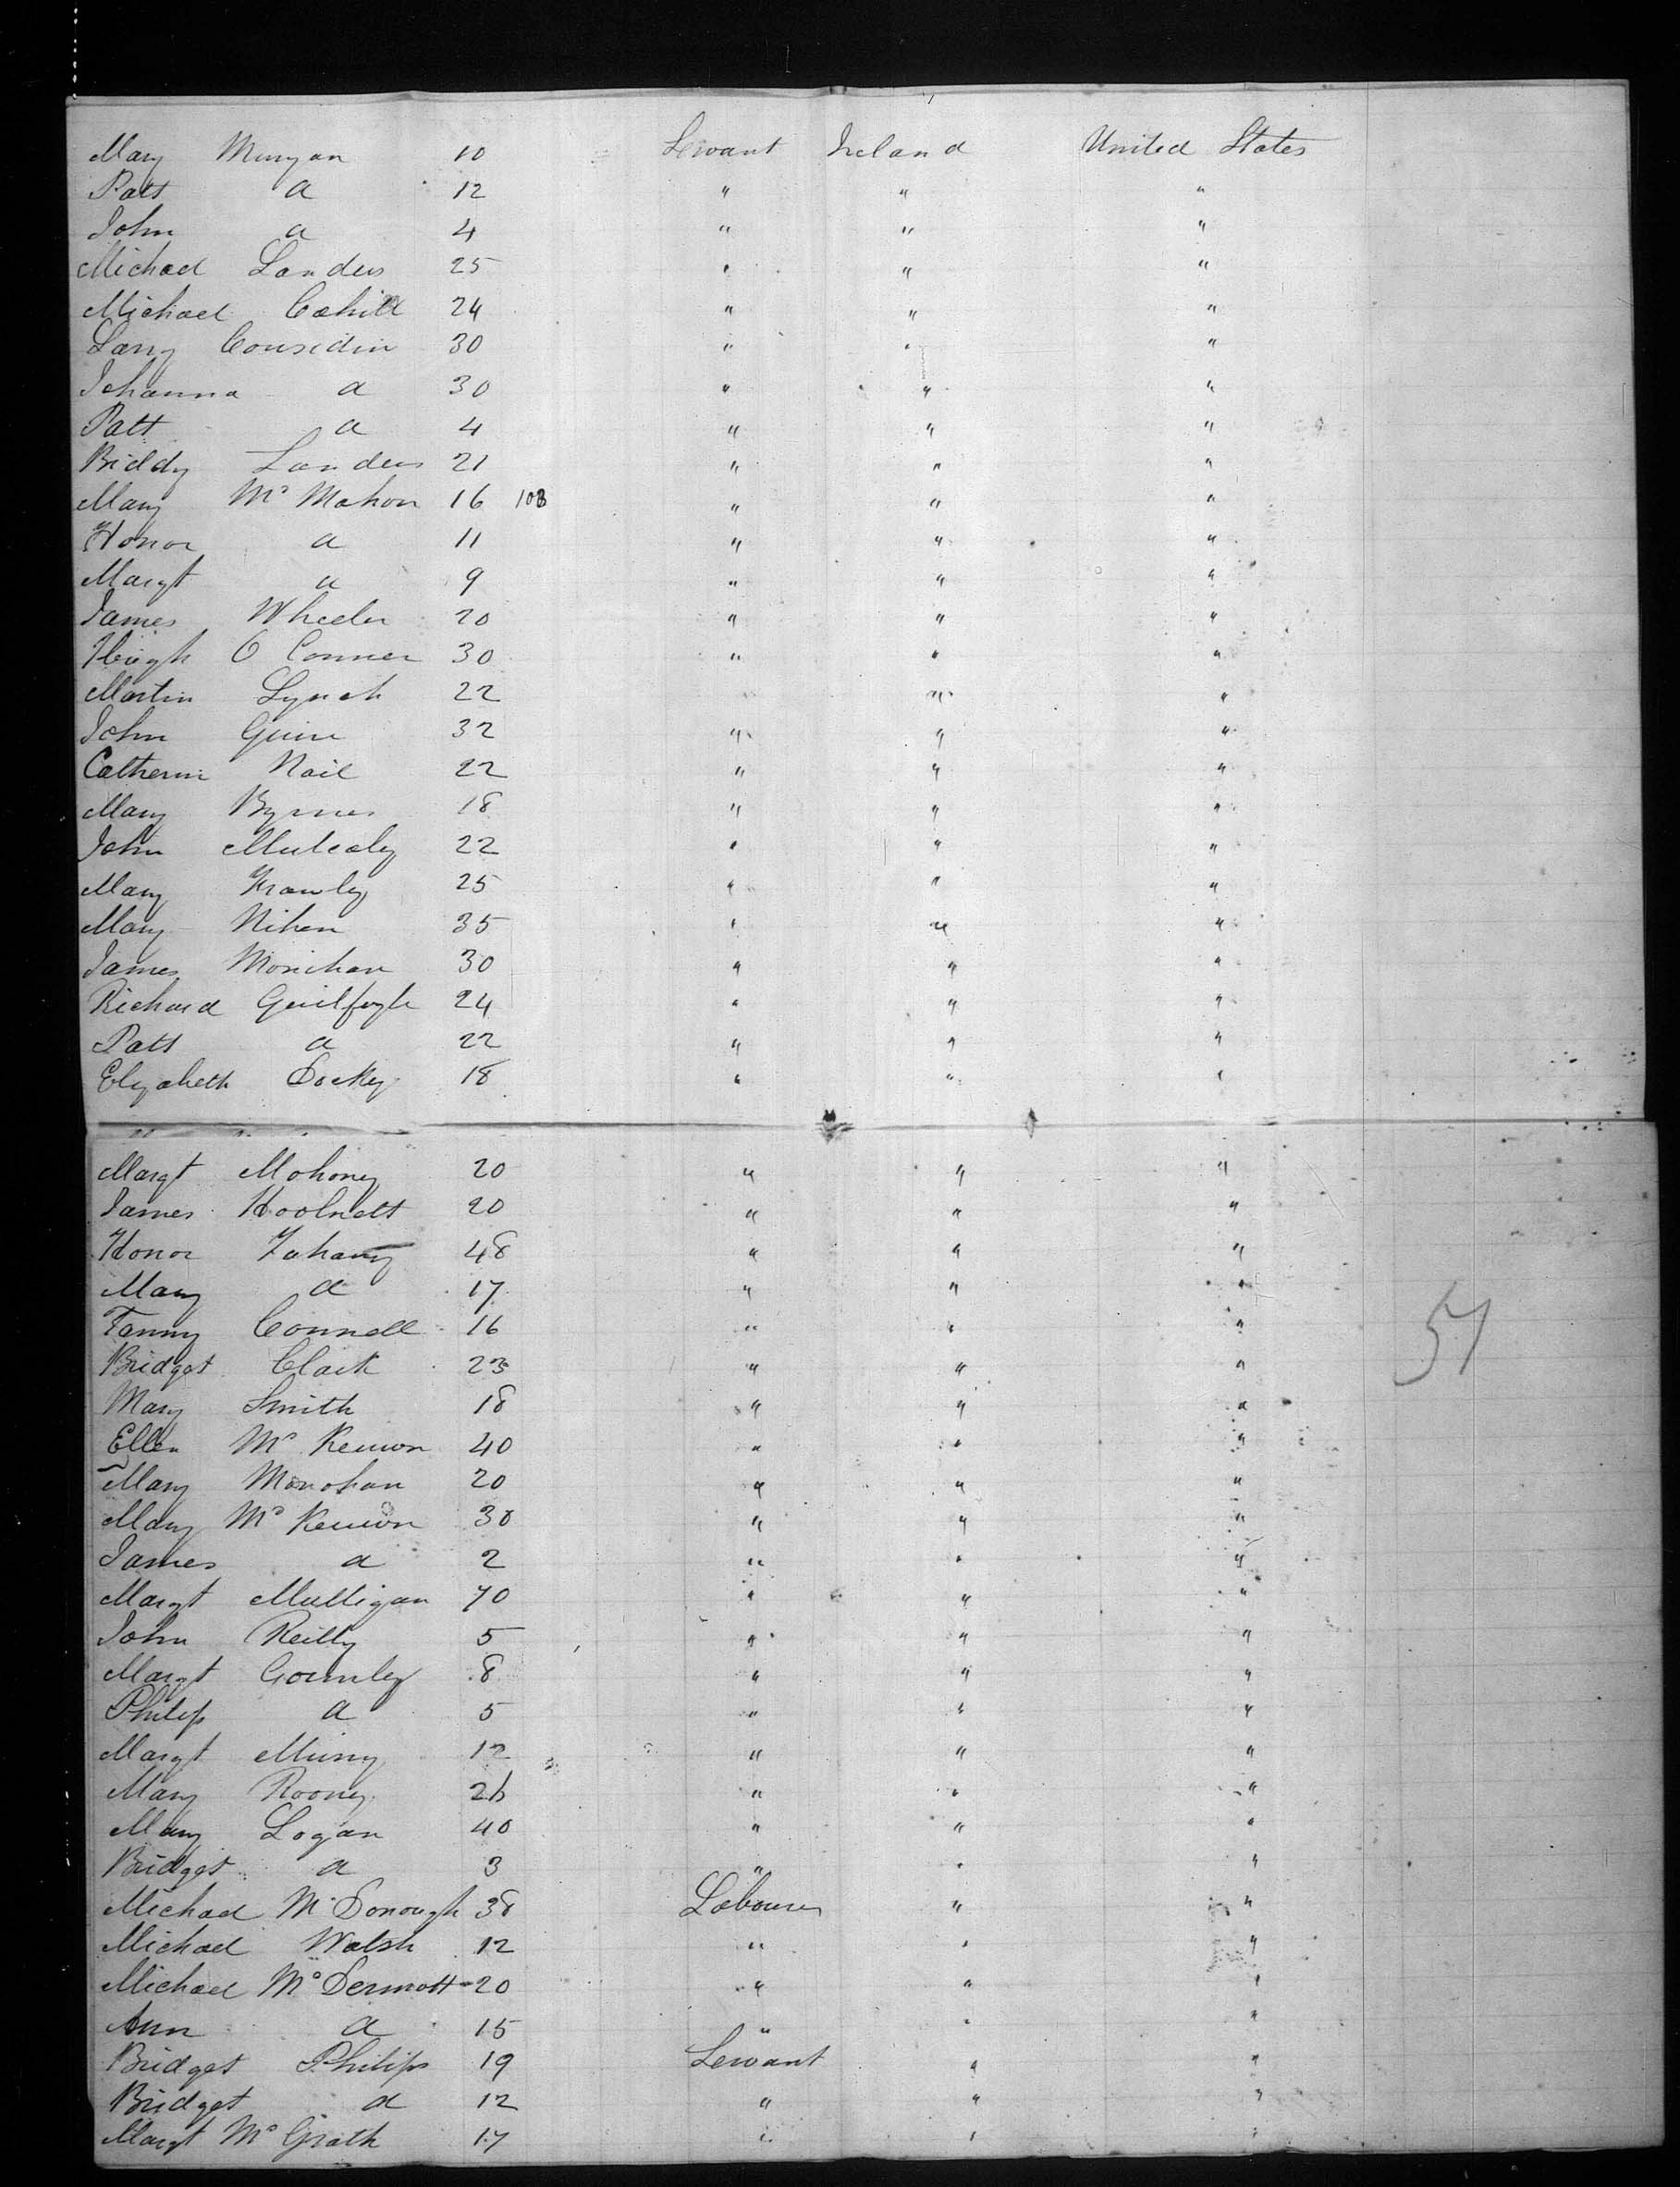 Mary Munyan 10 Servant Ireland United States
Patt a 12 " " "
John a 4 " " "
Michael Landers 25 " " "
Michael Cahill 24 " " "
Lary Considin 30 " " "
Johanna a 30 " " "
Patt a 4 " " "
Biddy Landers 21 " " "
Mary Mc Mahon 16 108 " " "
Honor a 11 " " "
Margt a 9 " " "
James Wheeler 20 " " "
Hugh O Conner 30 " " "
Martin Lynch 22 " " "
John Guin 32 " " "
Catherin Nail 22 " " "
Mary Byrnes 18 " " "
John Mulcaly 22 " " "
Mary Frawly 25 " " "
Mary Nihen 35 " " "
James Monihan 30 " " "
Richard Guilfoyle 24 " " "
Patt a 22 " " "
Elizabeth Dockey 18 " " "
Margt Mohoney 20 " " "
James 20 " " "
Honor Fahany 48 " " "
Mary a 17 " " "
Fanny Connell 16 " " "
Bridget Clark 23 " " "
Mary Smith 18 " " "
Ellen Mc Keuwon 40 " " "
Mary Monohan 20 " " "
Mary Mc Keuwon 30 " " "
James a 2 " " "
Margt Mulligan 70 " " "
John Reilly 5 " " "
Margt Gormley 8 " " "
Philip a 5 " " "
Margt Murry 12 " " "
Mary Rooney 26 " " "
Mary Logan 40 " " "
Bridget a 3 " " "
Michael Mc Donough 38 Labourer " "
Michael Walsh 12 " " "
Michael Mc Dermott 20 " " "
Ann a 15 " " "
Bridget Philips 19 Servant " "
Bridget a 12 " " "
Margt Mc Grath 17 " " "
51